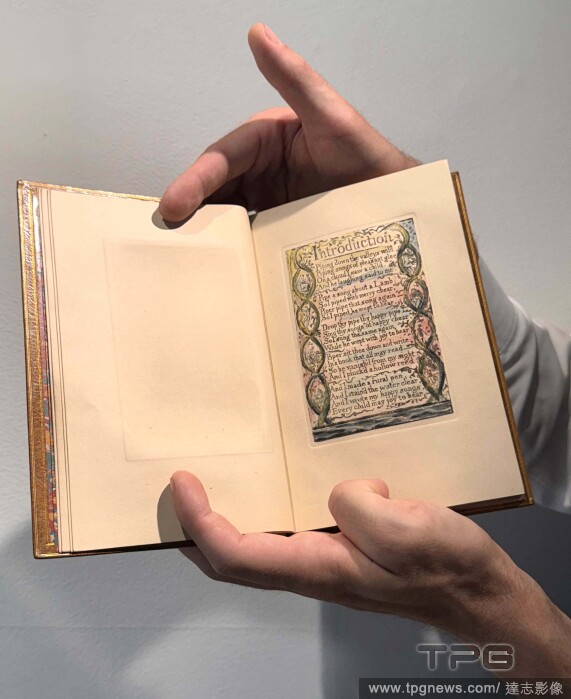 Introduction
Piping down the valleys wild
Piping songs of pleasant glee
On a cloud I saw a child.
And he laughing said to me.
Pipe a song about a Lamb:
So I piped with merry chear,
Piper pipe that song again
So I piped, he wept to hear.
Drop thy pipe thy happy pipe
Sing thy songs of happy chear,
So I sung the same again
While he wept with joy to hear
Piper sit thee down and write
In a book that all may read
So he vanish'd from my sight
And I pluck'd a hollow reed.
And I made a rural pen,
And I stain'd the water clear,
And I wrote my happy songs
Every child may joy to hear
TPG
www.tpgnews.com/ 達志影像